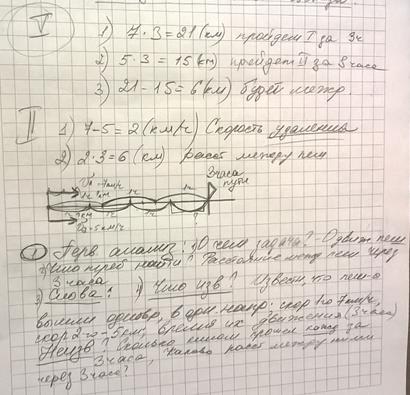 V
1) 7·3=21 (км) пройдет I за 3ч
2) 5·3=15 (км) пройдет II за 3 часа
3) 21-15=6 (км) будет межр.
II
1) 7-5=2 (км/ч) Скорость удаления
2) 2·3=6 (км) расст между пеш
3 часа
пути
1ч 1ч
1ч 7км
1ч 1ч
V2=5км/ч
1) О чем задача? - О движ. пеш
2) Что нужно найти? Расстояние между пеш через
3 часа
3) Слова? Что изв? Извест, что пеш-о
вышли одновр, в одн. напр. скор 1го 7км/ч,
скор 2го - 5км, время их движения (3 часа)
Неизв? Сколько прошел кажд за
3 часа, Каково расст между ними
через 3 часа?